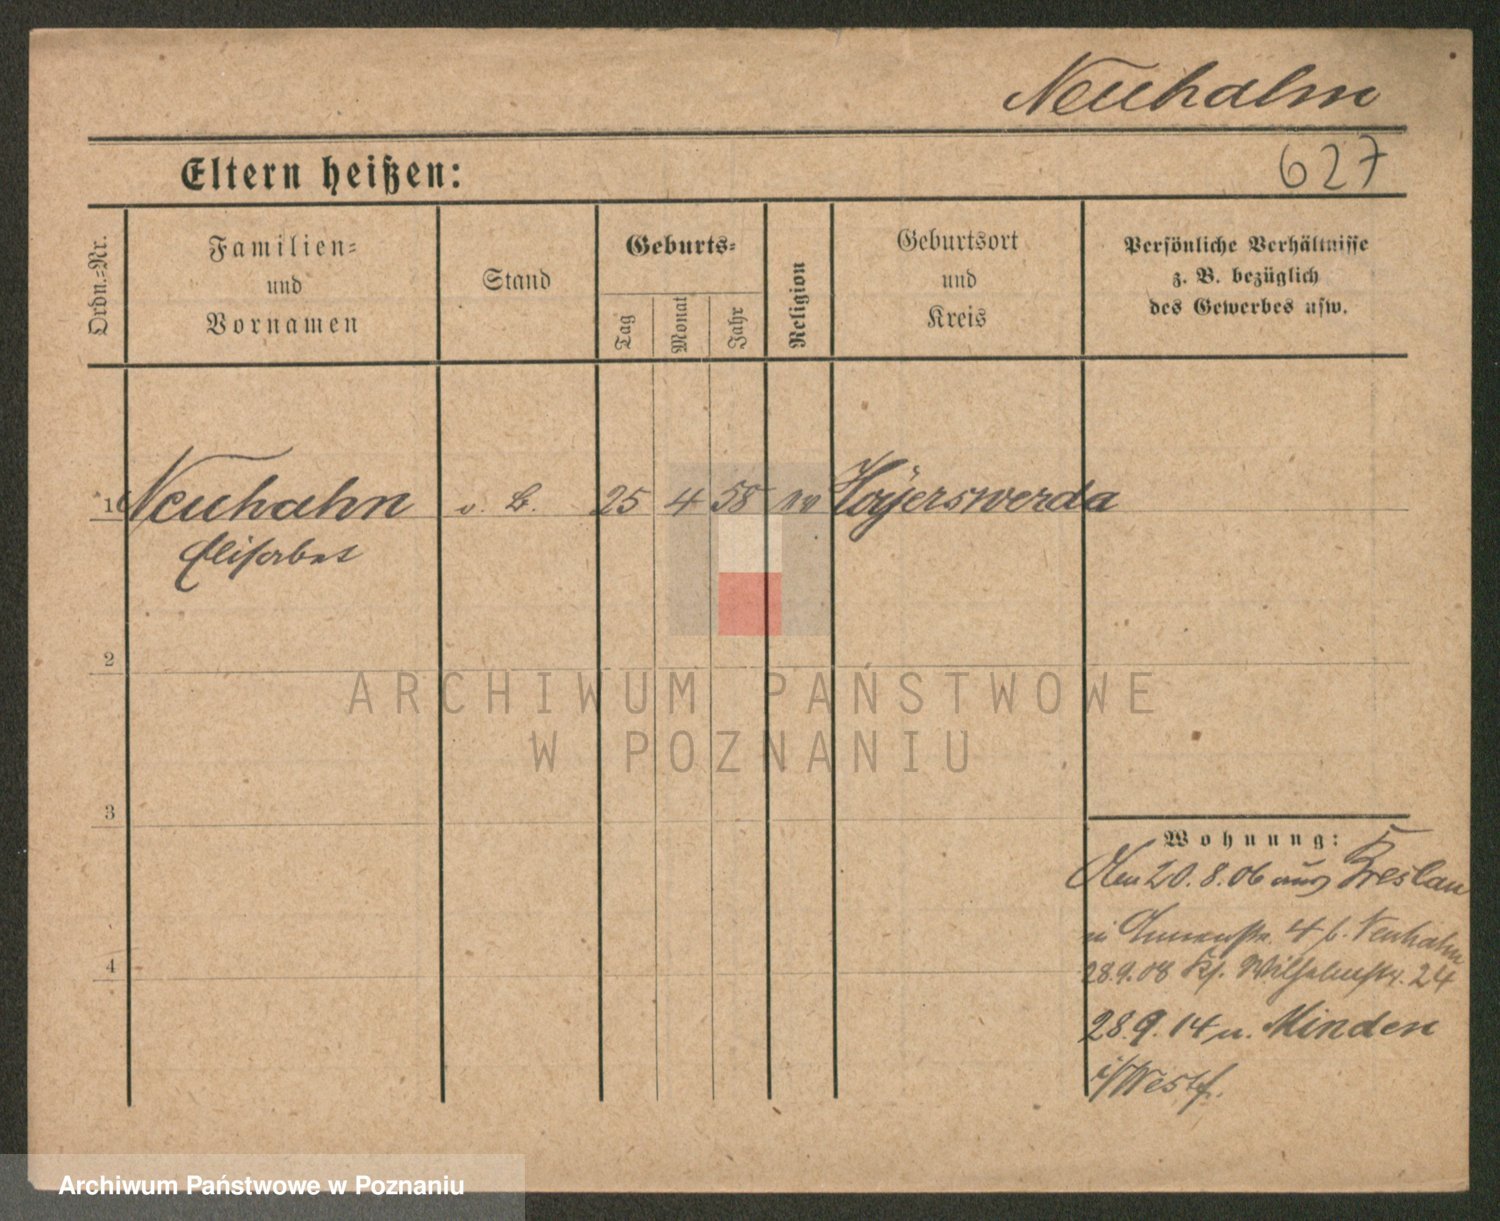 Neuhahn
Eltern heißen:
627
Ordn.-Nr.
Familien-
und
Vornamen
Stand
Geburts-
Tag
Monat
Jahr
Religion
Geburtsort
und
Kreis
Persönliche Verhältnisse
z. B. bezüglich
des Gewerbes usw.
1 Neuhahn o. B. 25 4 58 ev Hoyerswerda
Elisabet
2
3
4
Wohnung:
Den 20.8.06 aus Breslau
4 b. Neuhahn
28.9.08 Wilhelmstr. 24
28.9.14 n. Minden
i/Westf.
ARCHIWUM PAŃSTWOWE
W POZNANIU
Archiwum Państwowe w Poznaniu